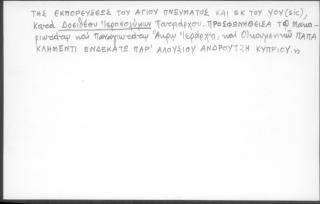 ΤΗΣ ΕΚΠΟΡΕΥΣΕΩΣ ΤΟΥ ΑΓΙΟΥ ΠΝΕΥΜΑΤΟΣ ΚΑΙ ΕΚ ΤΟΥ ΥΟΥ (sic),
Κατά Δοσιθέου Ἱεροσολύμων Πατριάρχου. ΠΡΟΣΦΩΝΗΘΕΙΣΑ ΤΩ Μακα-
ριωτάτῳ καί Παναγιωτάτῳ Ἄκρῳ Ἱεράρχῃ, καί Οἰκουμενικῷ ΠΑΠΑ
ΚΛΗΜΕΝΤΙ ΕΝΔΕΚΑΤΩ ΠΑΡ' ΑΛΟΥΣΙΟΥ ΑΝΔΡΟΥΤΖΗ ΚΥΠΡΙΟΥ.»